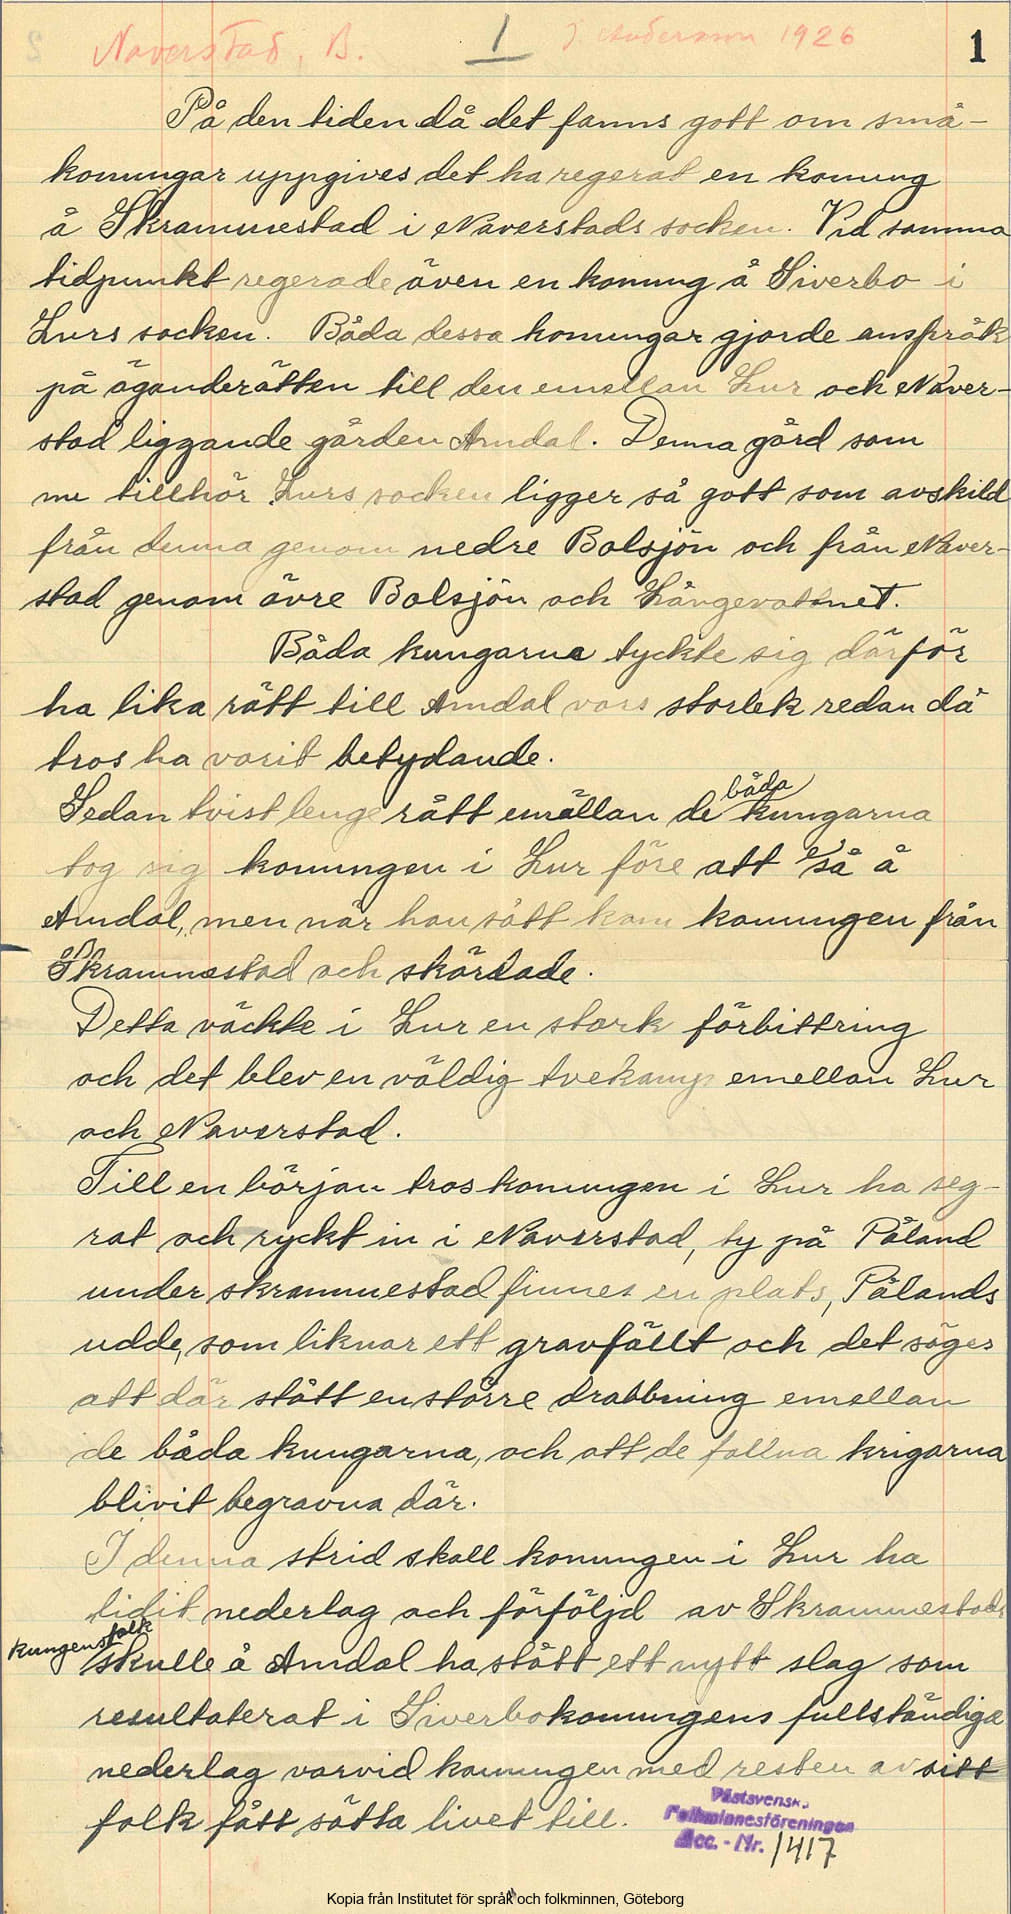 Naverstad, B. 1 J. Andersson 1926 1
På den tiden då det fanns gott om små-
konungar uppgives det ha regerat en konung
å Skrammestad i Naverstads socken. Vid samma
tidpunkt regerade även en konung å Siverbo i
Lurs socken. Båda dessa konungar gjorde anspråk
på äganderätten till den emellan Lur och Naver-
stad liggande gården Amdal. Denna gård som
nu tillhör Lurs socken ligger så gott som avskild
från denna genom nedre Bolsjön och från Naver-
stad genom övre Bolsjön och Långevattnet.
Båda kungarna tyckte sig därför
ha lika rätt till Amdal vars storlek redan då
tros ha varit betydande.
båda
Sedan tvist lenge rått emällan de kungarna
tog sig konungen i Lur före att så å
Amdal, men när han sått kom konungen från
Skrammestad och skördade.
Detta väckte i Lur en stark förbittring
och det blev en väldig tvekamp emellan Lur
och Naverstad.
Till en början tros konungen i Lur ha seg-
rat och ryckt in i Naverstad, ty på Påland
under skrammestad finnes en plats, Pålands
udde, som liknar ett gravfällt och det säges
att där stått en större drabbning emellan
de båda kungarna, och att de fallna krigarna
blivit begravna där.
I denna strid skall konungen i Lur ha
lidit nederlag och förföljd av Skrammestads
kungens folk
skulle å Amdal ha stått ett nytt slag som
resultaterat i Siverbokonungens fullständiga
nederlag varvid konungen med resten av sitt
folk fått sätta livet till.
Västsvensk.
Folkminnesföreningen
Acc. - Nr. 1417
Kopia från Institutet för språk och folkminnen, Göteborg